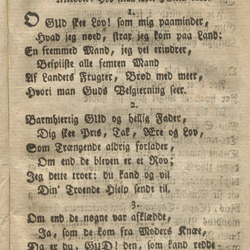 1.
O GUD skee Lov! som mig paaminder,
Hvad jeg nød, strax jeg kom paa Land:
En fremmed Mand, jeg vel erindrer,
Bespiste alle femten Mand
Af Landets Frugter, Brød med meer,
Hvori man Guds Velgierning seer.
2.
Barmhiertig Gud og hellig Fader,
Dig skee Priis, Tak, Ære og Lov,
Som Trængende aldrig forlader,
Om end de bleven er et Rov;
Jeg dette troer: du kiærlig vil
Din' Troende Hielp sende til.
3.
Om end de nøgne var afklædde,
Ja, som de kom fra Moders Knæe,
Da er du, GUD! den, som kand redde